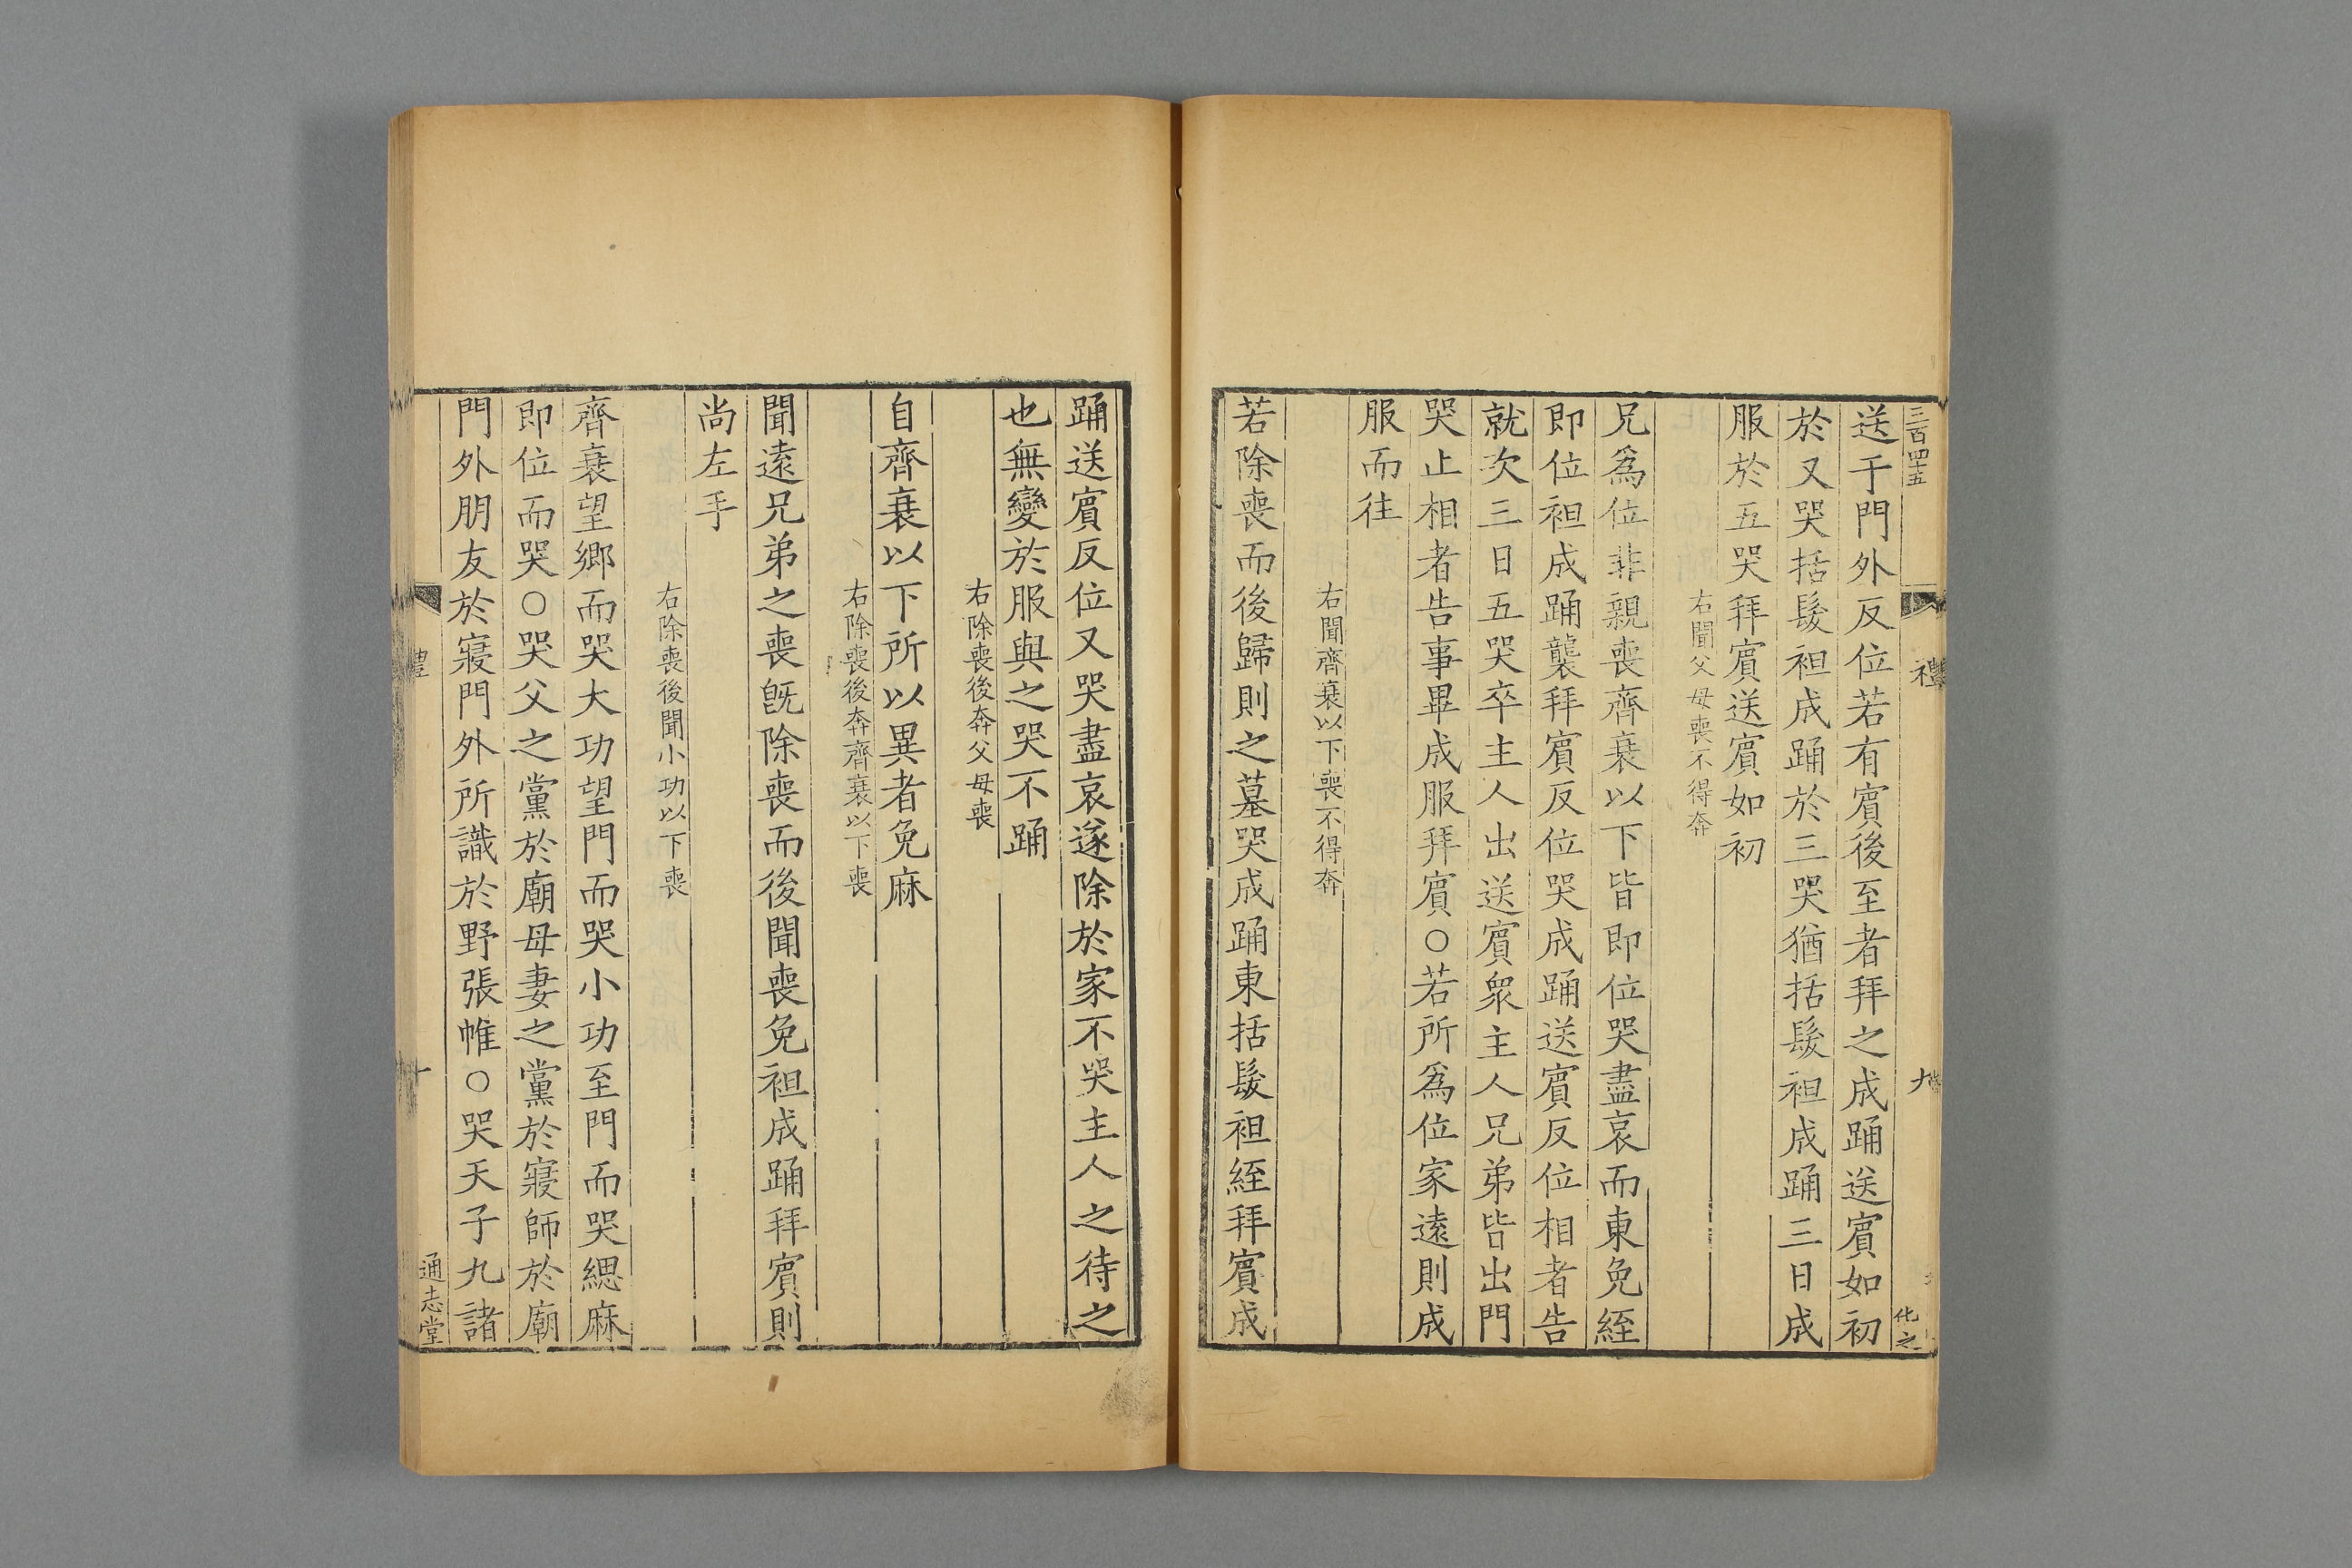 三百四十五
禮
九
化之
送于門外反位若有賔後至者拜之成踊送賔如初
於又哭括髮袒成踊於三哭猶括髮袒成踊三日成
服於五哭拜賔送賔如初
右聞父母喪不得奔
兄爲位非親喪齊衰以下皆即位哭盡哀而東免絰
即位袒成踊襲拜賔反位哭成踊送賔反位相者告
就次三日五哭卒主人出送賔衆主人兄弟皆出門
哭止相者告事畢成服拜賔○若所爲位家遠則成
服而往
右聞齊衰以下喪不得奔
若除喪而後歸則之墓哭成踊東括髮袒絰拜賔成
踊送賔反位又哭盡哀遂除於家不哭主人之待之
也無變於服與之哭不踊
右除喪後奔父母喪
自齊衰以下所以異者免麻
右除喪後奔齊衰以下喪
聞遠兄弟之喪旣除喪而後聞喪免袒成踊拜賔則
尚左手
右除喪後聞小功以下喪
齊衰望鄉而哭大功望門而哭小功至門而哭緦麻
即位而哭○哭父之黨於廟母妻之黨於寢師於廟
門外朋友於寢門外所識於野張帷○哭天子九諸
十
通志堂